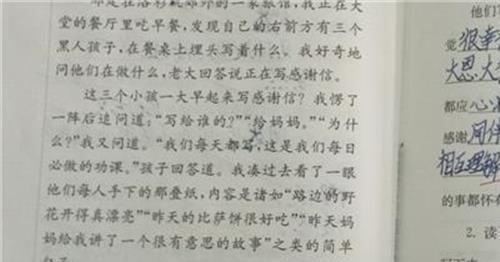 那是在洛杉矶郊外的一家旅馆，我正在大
堂的餐厅里吃早餐，发现自己的右前方有三个
黑人孩子，在餐桌上埋头写着什么。我好奇地
问他们在做什么，老大回答说正在写感谢信。
这三个小孩一大早起来写感谢信？我愣了
一阵后追问道：“写给谁的？”“给妈妈。”“为什
么？”我又问道。“我们每天都写，这是我们每日
必做的功课。”孩子回答道。我凑过去看了一眼
他们每人手下的那叠纸，内容是诸如“路边的野
花开得真漂亮”“昨天的比萨饼很好吃”“昨天妈
妈给我讲了一个很有意思的故事”之类的简单
他们
觉 很幸
大恩大
都应 心
感谢 同伴
相互理解
的事都怀有
2. 读